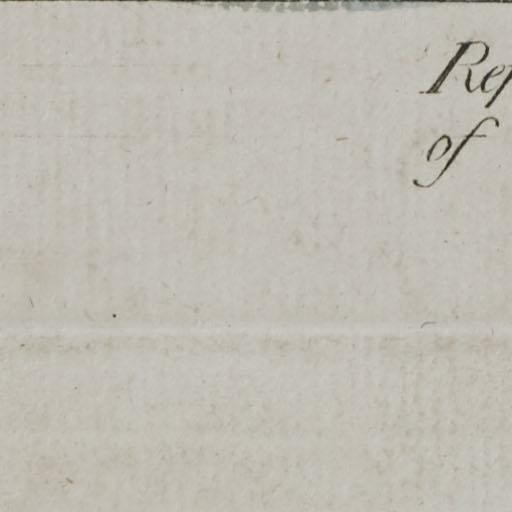 Rep
of